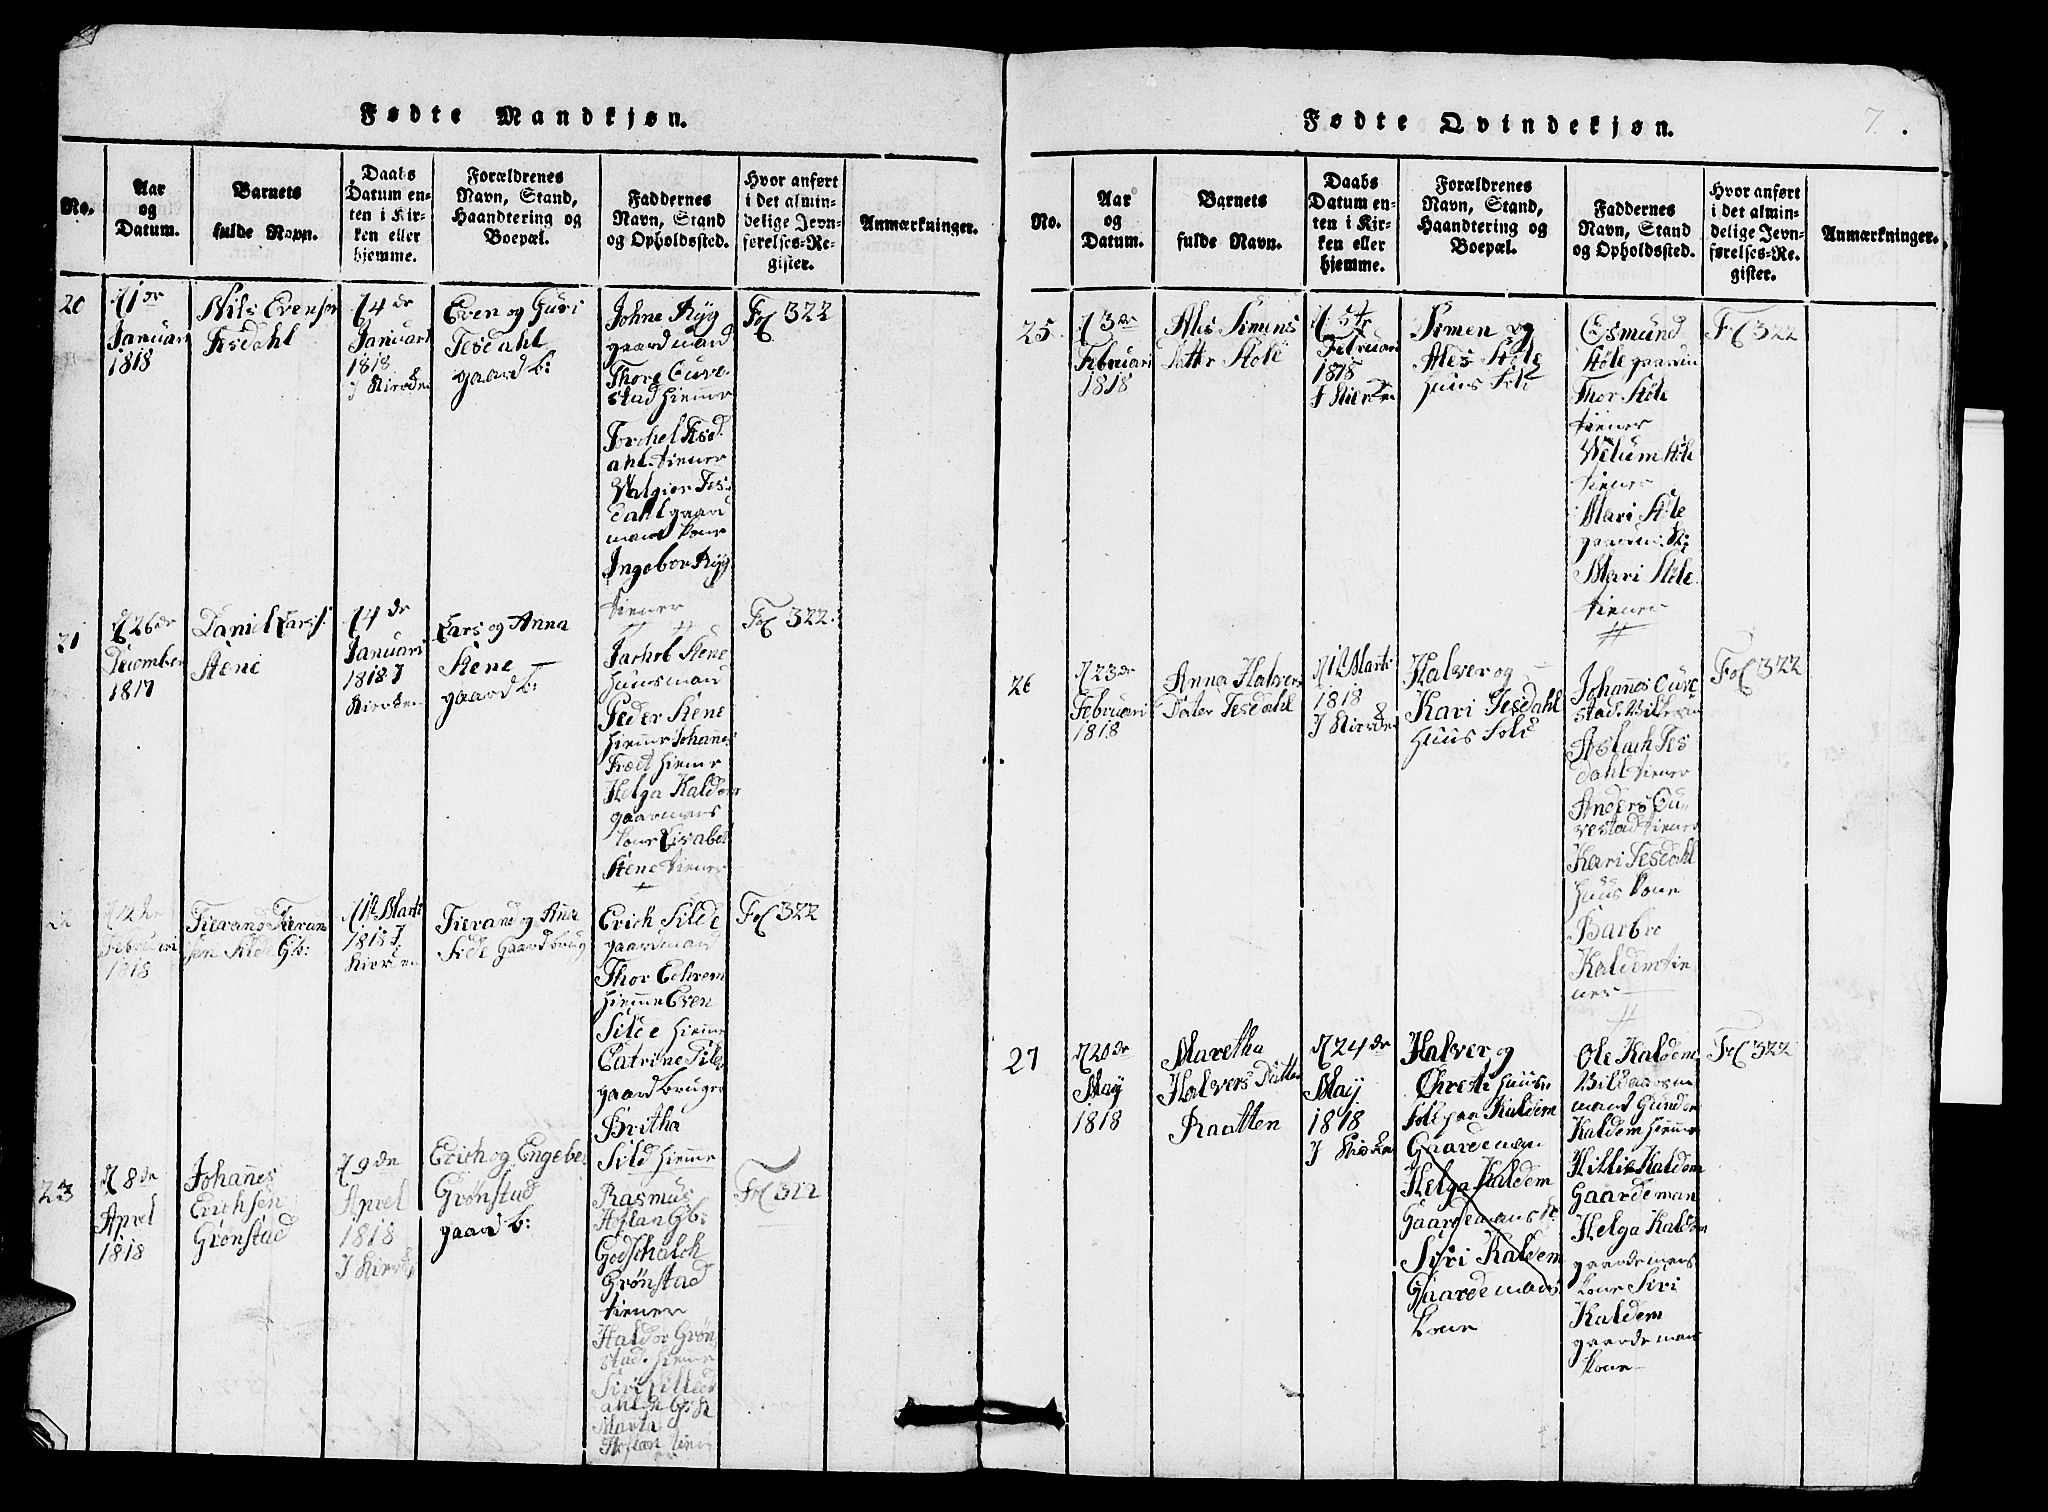 Fødte Mandkjøn.
No.
Aar
og
Datum.
Barnets
fulde Navn.
Daabs
Datum en-
ten i Kir-
ken eller
hjemme.
Forældrenes
Navn, Stand,
Haandtering og
Boepæl.
Faddernes
Navn, Stand
og Opholdssted.
Hvor anført
i det almin-
delige Jevn-
førelses-Re-
gister.
Anmærkninger.
20
1de
Januari
1818
Nils Evensen
Tesdahl
4de
Januari
1818
I Kircken
Even og Guri
Tesdahl
gaard b:
Johne Ryg
gaardmand
Thore Curve-
stad hieme
Torchel Tesd
ahl tiener
Valgier Tes-
dahl gaard
mans kone
Ingebor Ryg
tiener
Fol 322
21
26de
December
1817
Daniel Lars:
Stene
4de
Januari
1818 I
Kircken
Lars og Anna
Stene
gaard b:
Jachob Stene
huusmand
Peder Stene
hieme Johannes
hieme
Helga Kaldem
gaarmans
kone Lisabet
Stene tiener
Fol 322
22
Februari
1818
Tierand Tieran
sen Silde Gb:
1st Marti
1818 I
Kircken
Tierand og Ana
Silde Gaardbrug
Erich Silde
gaardmand
Thor Echrem
hieme Even
Silde hieme
Catrine Silde
gaardbruger
Britha
Sild hieme
Fol 322
23
8de
Aprel
1818
Johanes
Erichsen
Grønstad
9de
Aprel
1818
I Kircke
Erich og Engebor
Grønstad
gaard b:
Rasmus
Hoflan Gb:
Godschalch
Grønstad
tiener
Haldor Grøn
stad hieme
Siri Silled
ahl
Marta
Hoflan tien
er
Fol 322
Fødte Qvindekjøn.
7.
No.
Aar
og
Datum.
Barnets
fulde Navn.
Daabs
Datum en-
ten i Kir-
ken eller
hjemme.
Forældrenes
Navn, Stand,
Haandtering og
Boepæl.
Faddernes
Navn, Stand
og Opholdssted.
Hvor anført
i det almin-
delige Jevn-
førelses-Re-
gister.
Anmærkninger.
25
3de
Februari
1818
Ales Simens
Datter Støle
5te
Februar
1818
I Kircken
Simen og
Ales Støle
Huus Folk
Osmund
Støle gaarm
Thor Støle
tiener
Vilum Støle
tiener
Mari Støle
gaarm: k:
Mari Støle
tiener
Fol 322
26
23de
Februari
1818
Anna Halvers
Dater Tesdahl
1st Marti
1818
I Kircken
Halver og
Kari Tesdahl
Huus Folk
Johannes Curve
stad
Aslach Tes
dahl tiener
Anders Cur
vestad tiener
Kari Tesdahl
Huus kone
Barbro
Kaldem tie
ner
Fol 322
27
20de
May
1818
Maretha
Halvers Datter
Raatten
24de
May
1818
I Kircken
Halver og
Chresti Huus
folk paa Kaldem
Gaardeman
Helga Kaldem
Gaardemans k:
Siri Kaldem
Gaardemans
kone
Ole Kaldem
mand Gunder
Kaldem hieme
Kaldem
Gaardeman
Helga Kaldem
gaardemans
kone Siri
Kaldem
gaardemans
kone
Fol 322